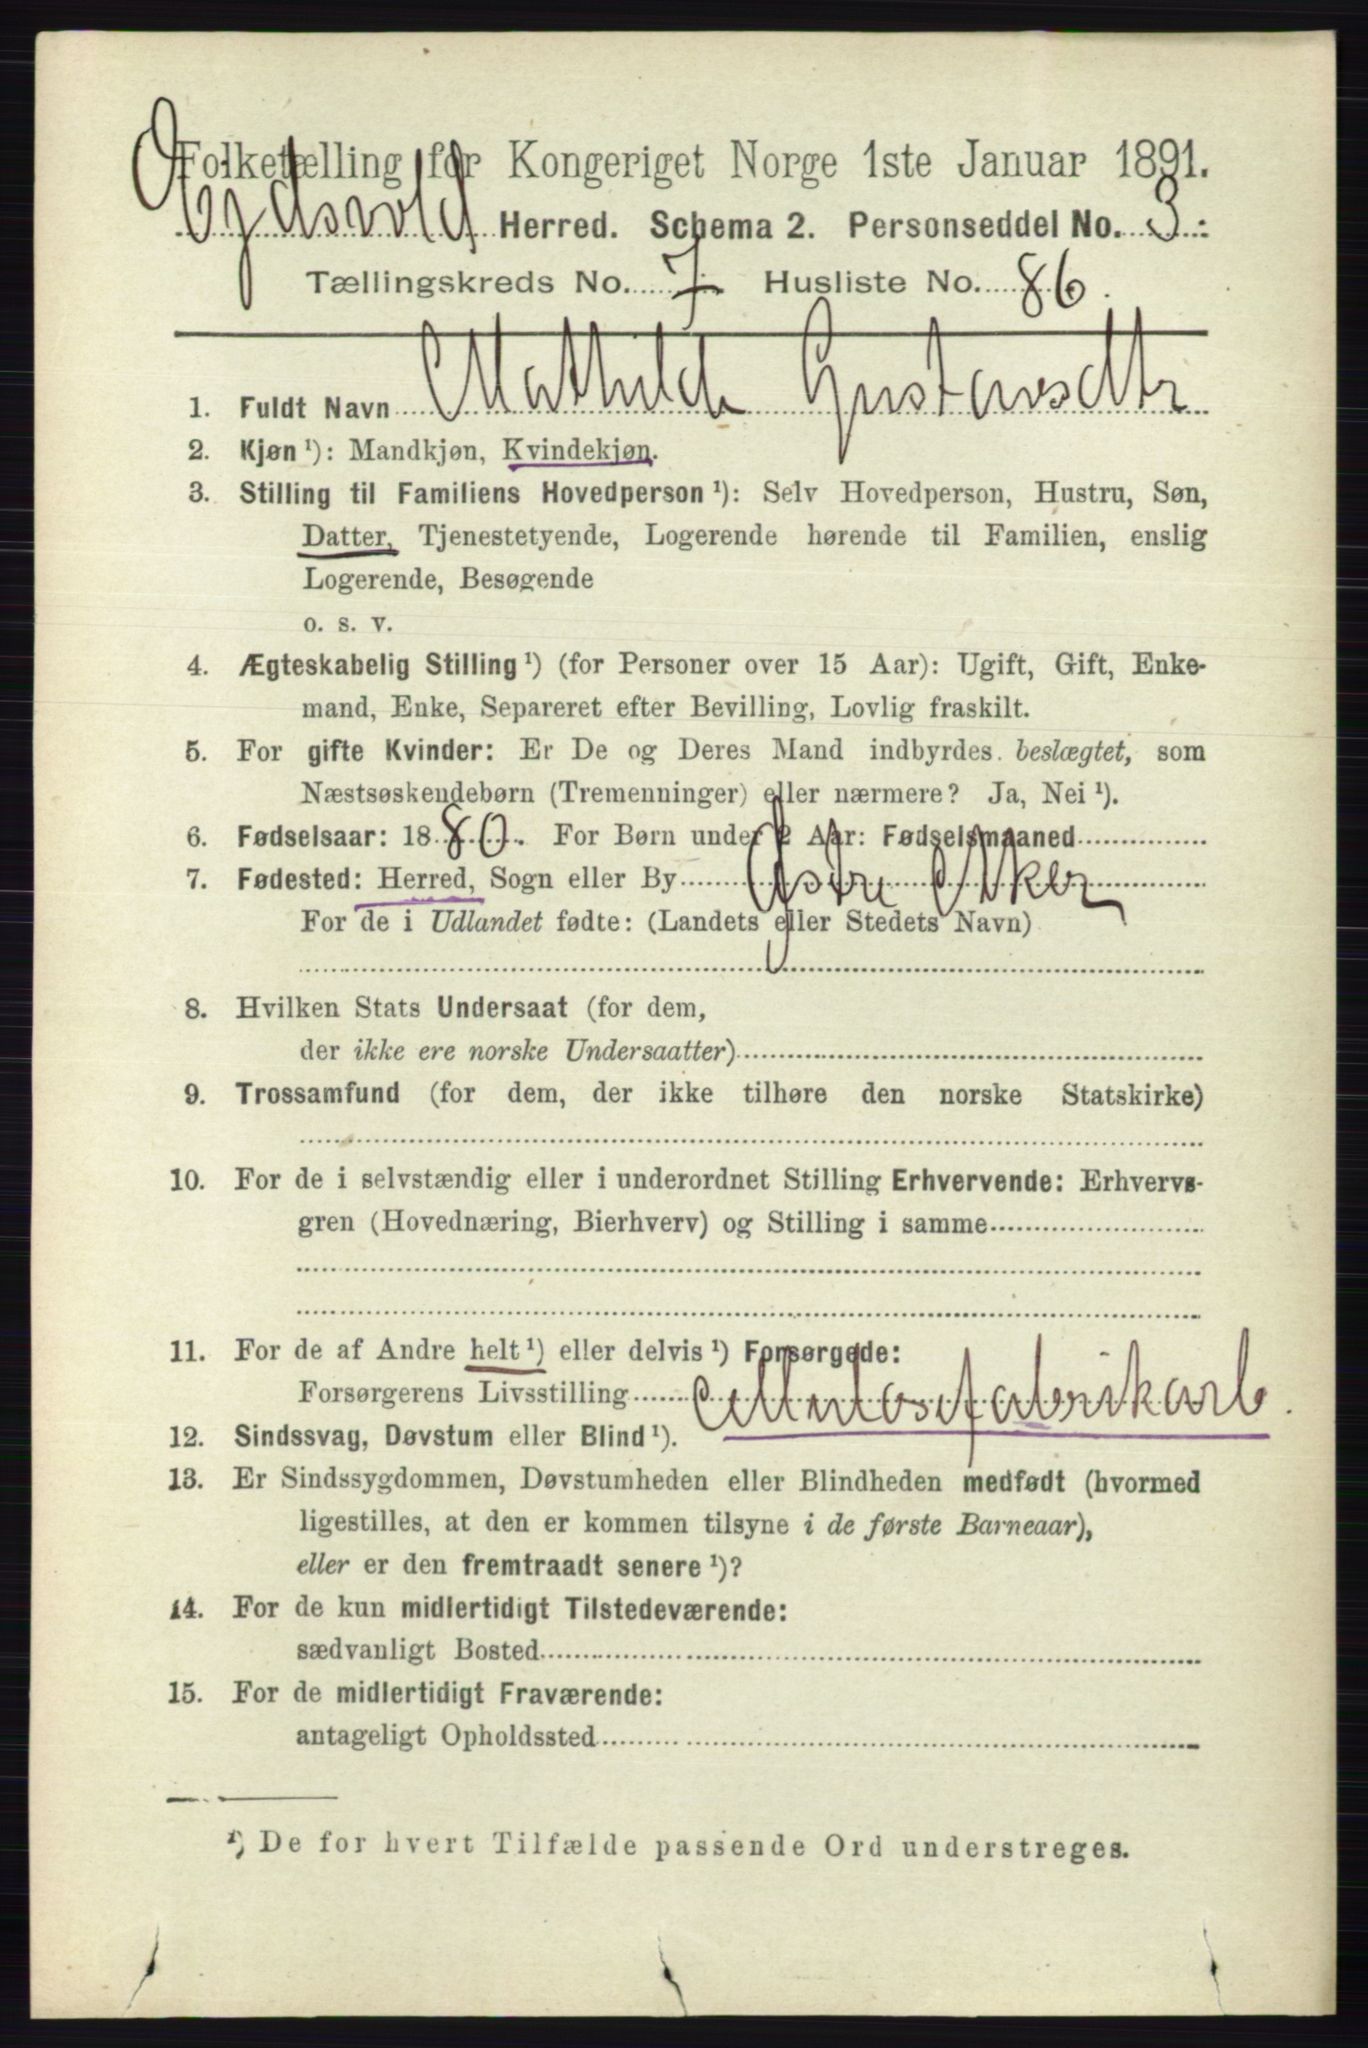 Folketælling for Kongeriget Norge 1ste Januar 1891.
Ejdsvold Herred. Schema 2. Personseddel No. 3.
Tællingskreds No. 7 Husliste No. 86.
1. Fuldt Navn Mathilde Gustavsdtr
2. Kjøn ¹): Mandkjøn, Kvindekjøn.
3. Stilling til Familiens Hovedperson ¹): Selv Hovedperson, Hustru, Søn,
Datter, Tjenestetyende, Logerende hørende til Familien, enslig
Logerende, Besøgende
o. s. v.
4. Ægteskabelig Stilling ¹) (for Personer over 15 Aar): Ugift, Gift, Enke-
mand, Enke, Separeret efter Bevilling, Lovlig fraskilt.
5. For gifte Kvinder: Er De og Deres Mand indbyrdes beslægtet, som
Næstsøskendebørn (Tremenninger) eller nærmere? Ja, Nei ¹).
6. Fødselsaar: 1880. For Børn under 2 Aar: Fødselsmaaned
7. Fødested: Herred, Sogn eller By Østre Aker
For de i Udlandet fødte: (Landets eller Stedets Navn)
8. Hvilken Stats Undersaat (for dem,
der ikke ere norske Undersaatter)
9. Trossamfund (for dem, der ikke tilhøre den norske Statskirke)
10. For de i selvstændig eller i underordnet Stilling Erhvervende: Erhvervs-
gren (Hovednæring, Bierhverv) og Stilling i samme
11. For de af Andre helt ¹) eller delvis ¹) Forsørgede:
Forsørgerens Livsstilling Cellulosefabrikarb.
12. Sindssvag, Døvstum eller Blind ¹).
13. Er Sindssygdommen, Døvstumheden eller Blindheden medfødt (hvormed
ligestilles, at den er kommen tilsyne i de første Barneaar),
eller er den fremtraadt senere ¹)?
14. For de kun midlertidigt Tilstedeværende:
sædvanligt Bosted
15. For de midlertidigt Fraværende:
antageligt Opholdssted
¹) De for hvert Tilfælde passende Ord understreges.